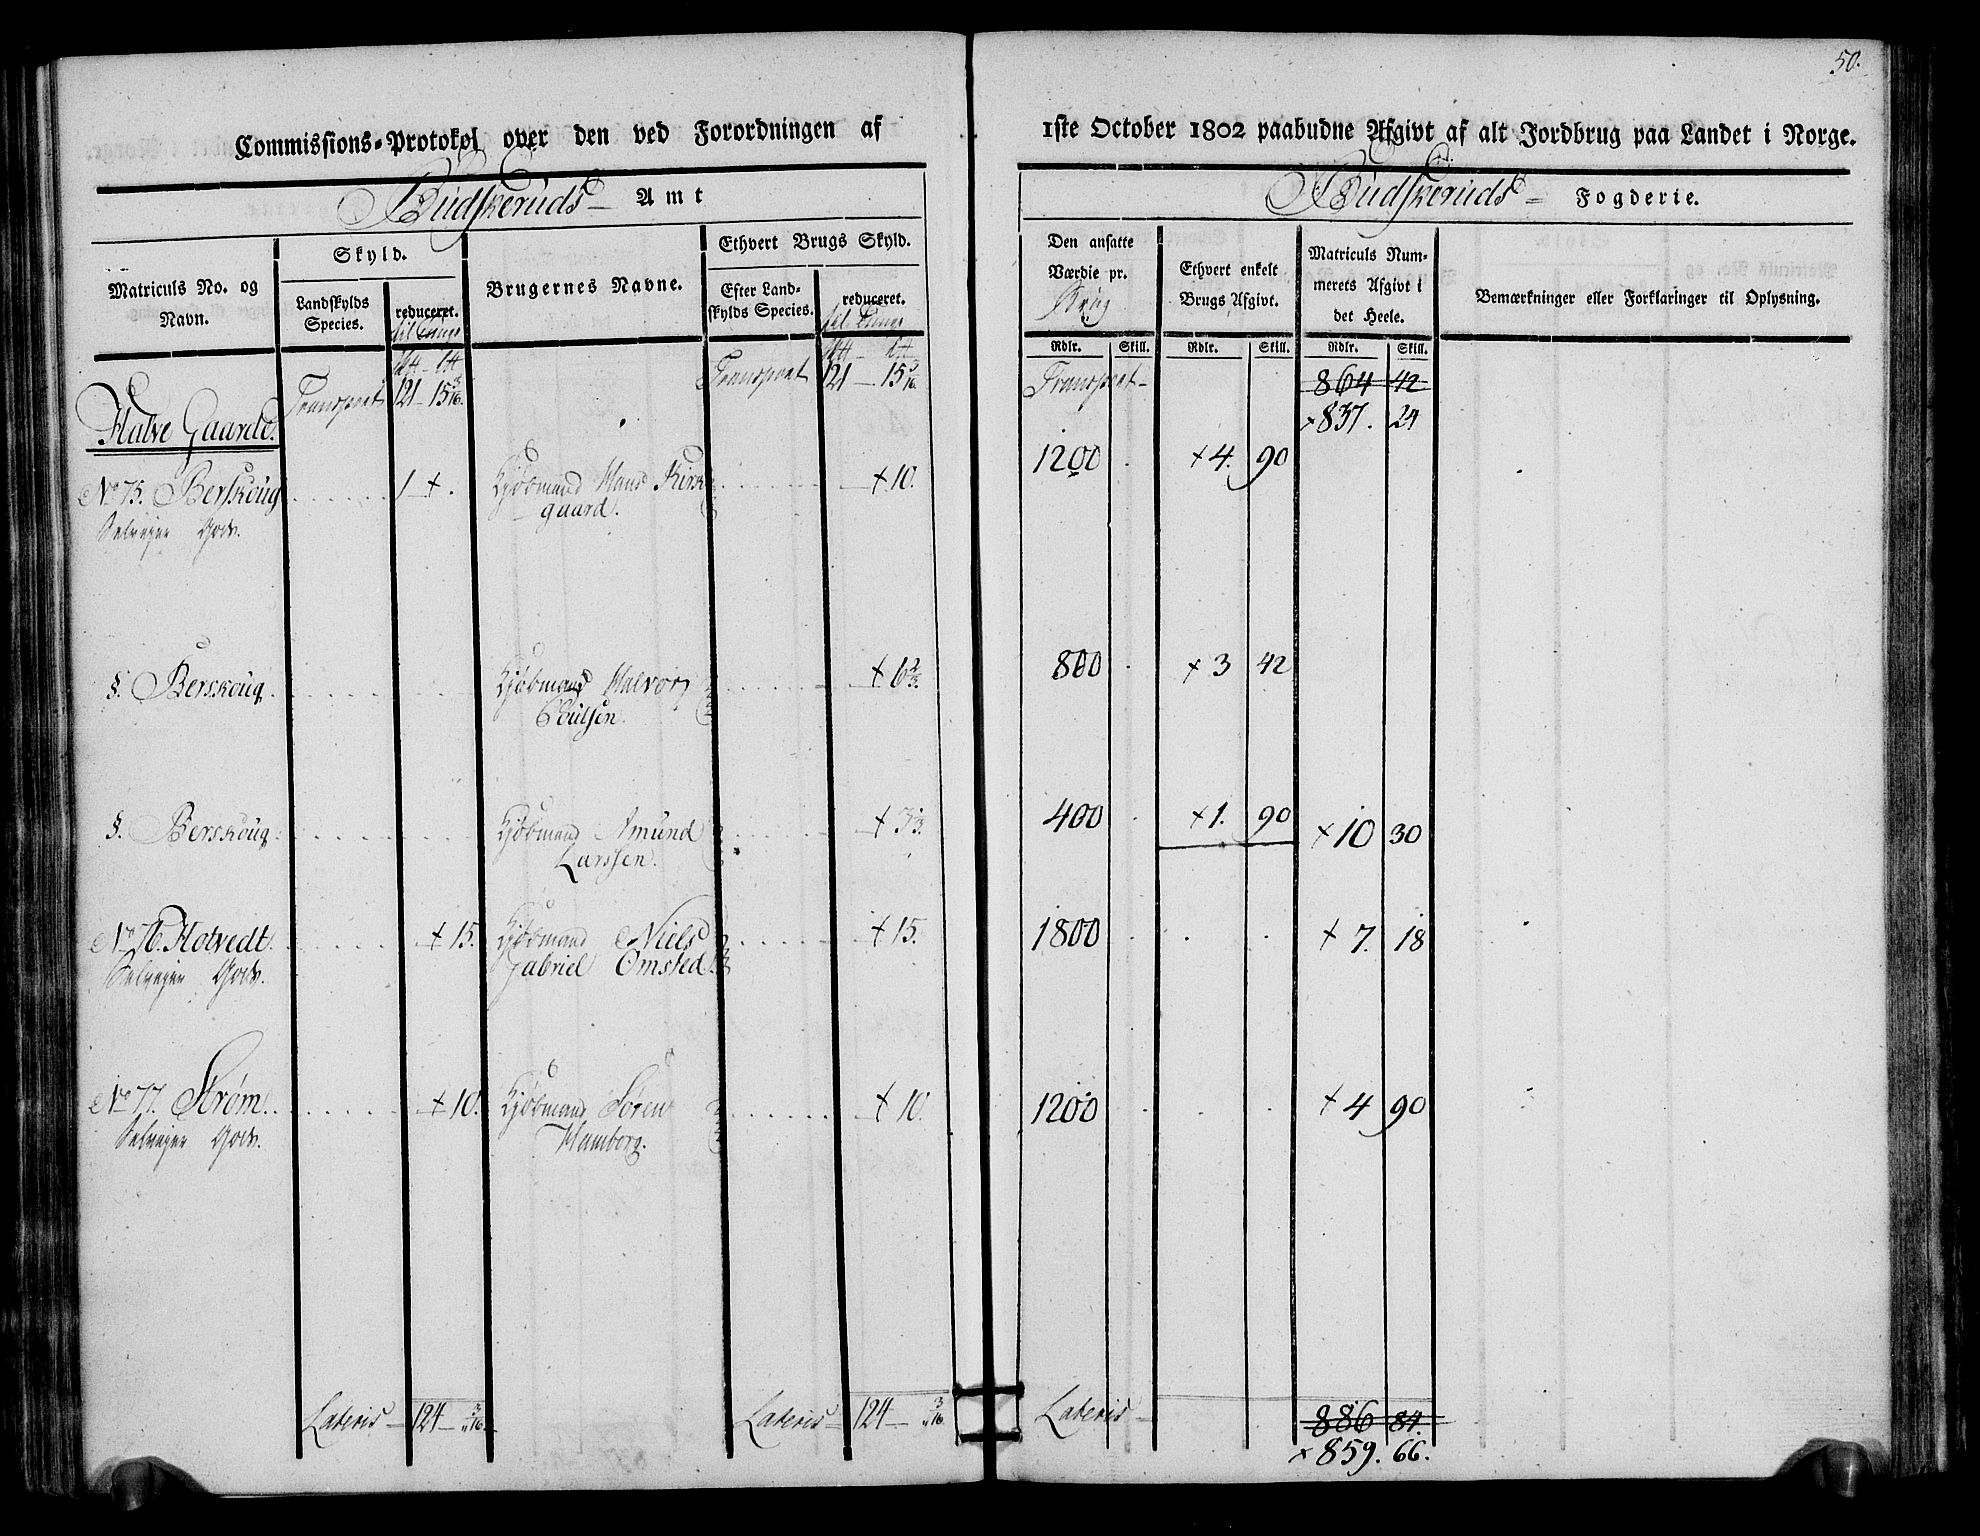 50.
Commissions-Protokol over den ved Forordningen af
1ste October 1802 paabudne Afgivt af alt Jordbrug paa Landet i Norge.
Budskeruds Amt
Budskeruds Fogderie.
Matriculs No. og Navn.
Skyld.
Landskylds Species.
reduceret.
til Tunge
Brugernes Navne.
Ethvert Brugs Skyld.
Efter Landskylds Species.
reduceret.
til Tunge
Den ansatte Værdie pr. Brug
Ethvert enkelt Brugs Afgivt.
Matriculs Nummerets Afgivt i det Heele.
Bemærkninger eller Forklaringer til Oplysning.
Rdlr. Skill. Rdlr. Skill. Rdlr. Skill.
Transport 121 - 15 3/16. Transport 121 - 15 3/16. Transport - 864 42
+ 837. 24
Halve Gaarde.
No 75. Berskoug 1 + . Kjøbmand Hans Kirk + 10. 1200 + 4. 90
Selvejer Gods. gaard.
§. Berskoug. Kjøbmand Halvor + 6 2/3. 800 + 3 42
Poulsen.
§. Berskoug. Kjøbmand Amund + 3 1/3. 400 + 1. 90 + 10 30
Larssen.
No 76. Hotvedt. + 15. Kjøbmand Niels + 15. 1800 + 7. 18
Selvejer Gods. Gabriel Omsted
No 77. Strøm. + 10. Kjøbmand Søren + 10. 1200 + 4 90
Selvejer Gods. Hamborg.
Lateris - 124 - " 3/16. Lateris - 124 - " 3/16. Lateris - 886 84.
+ 859. 66.